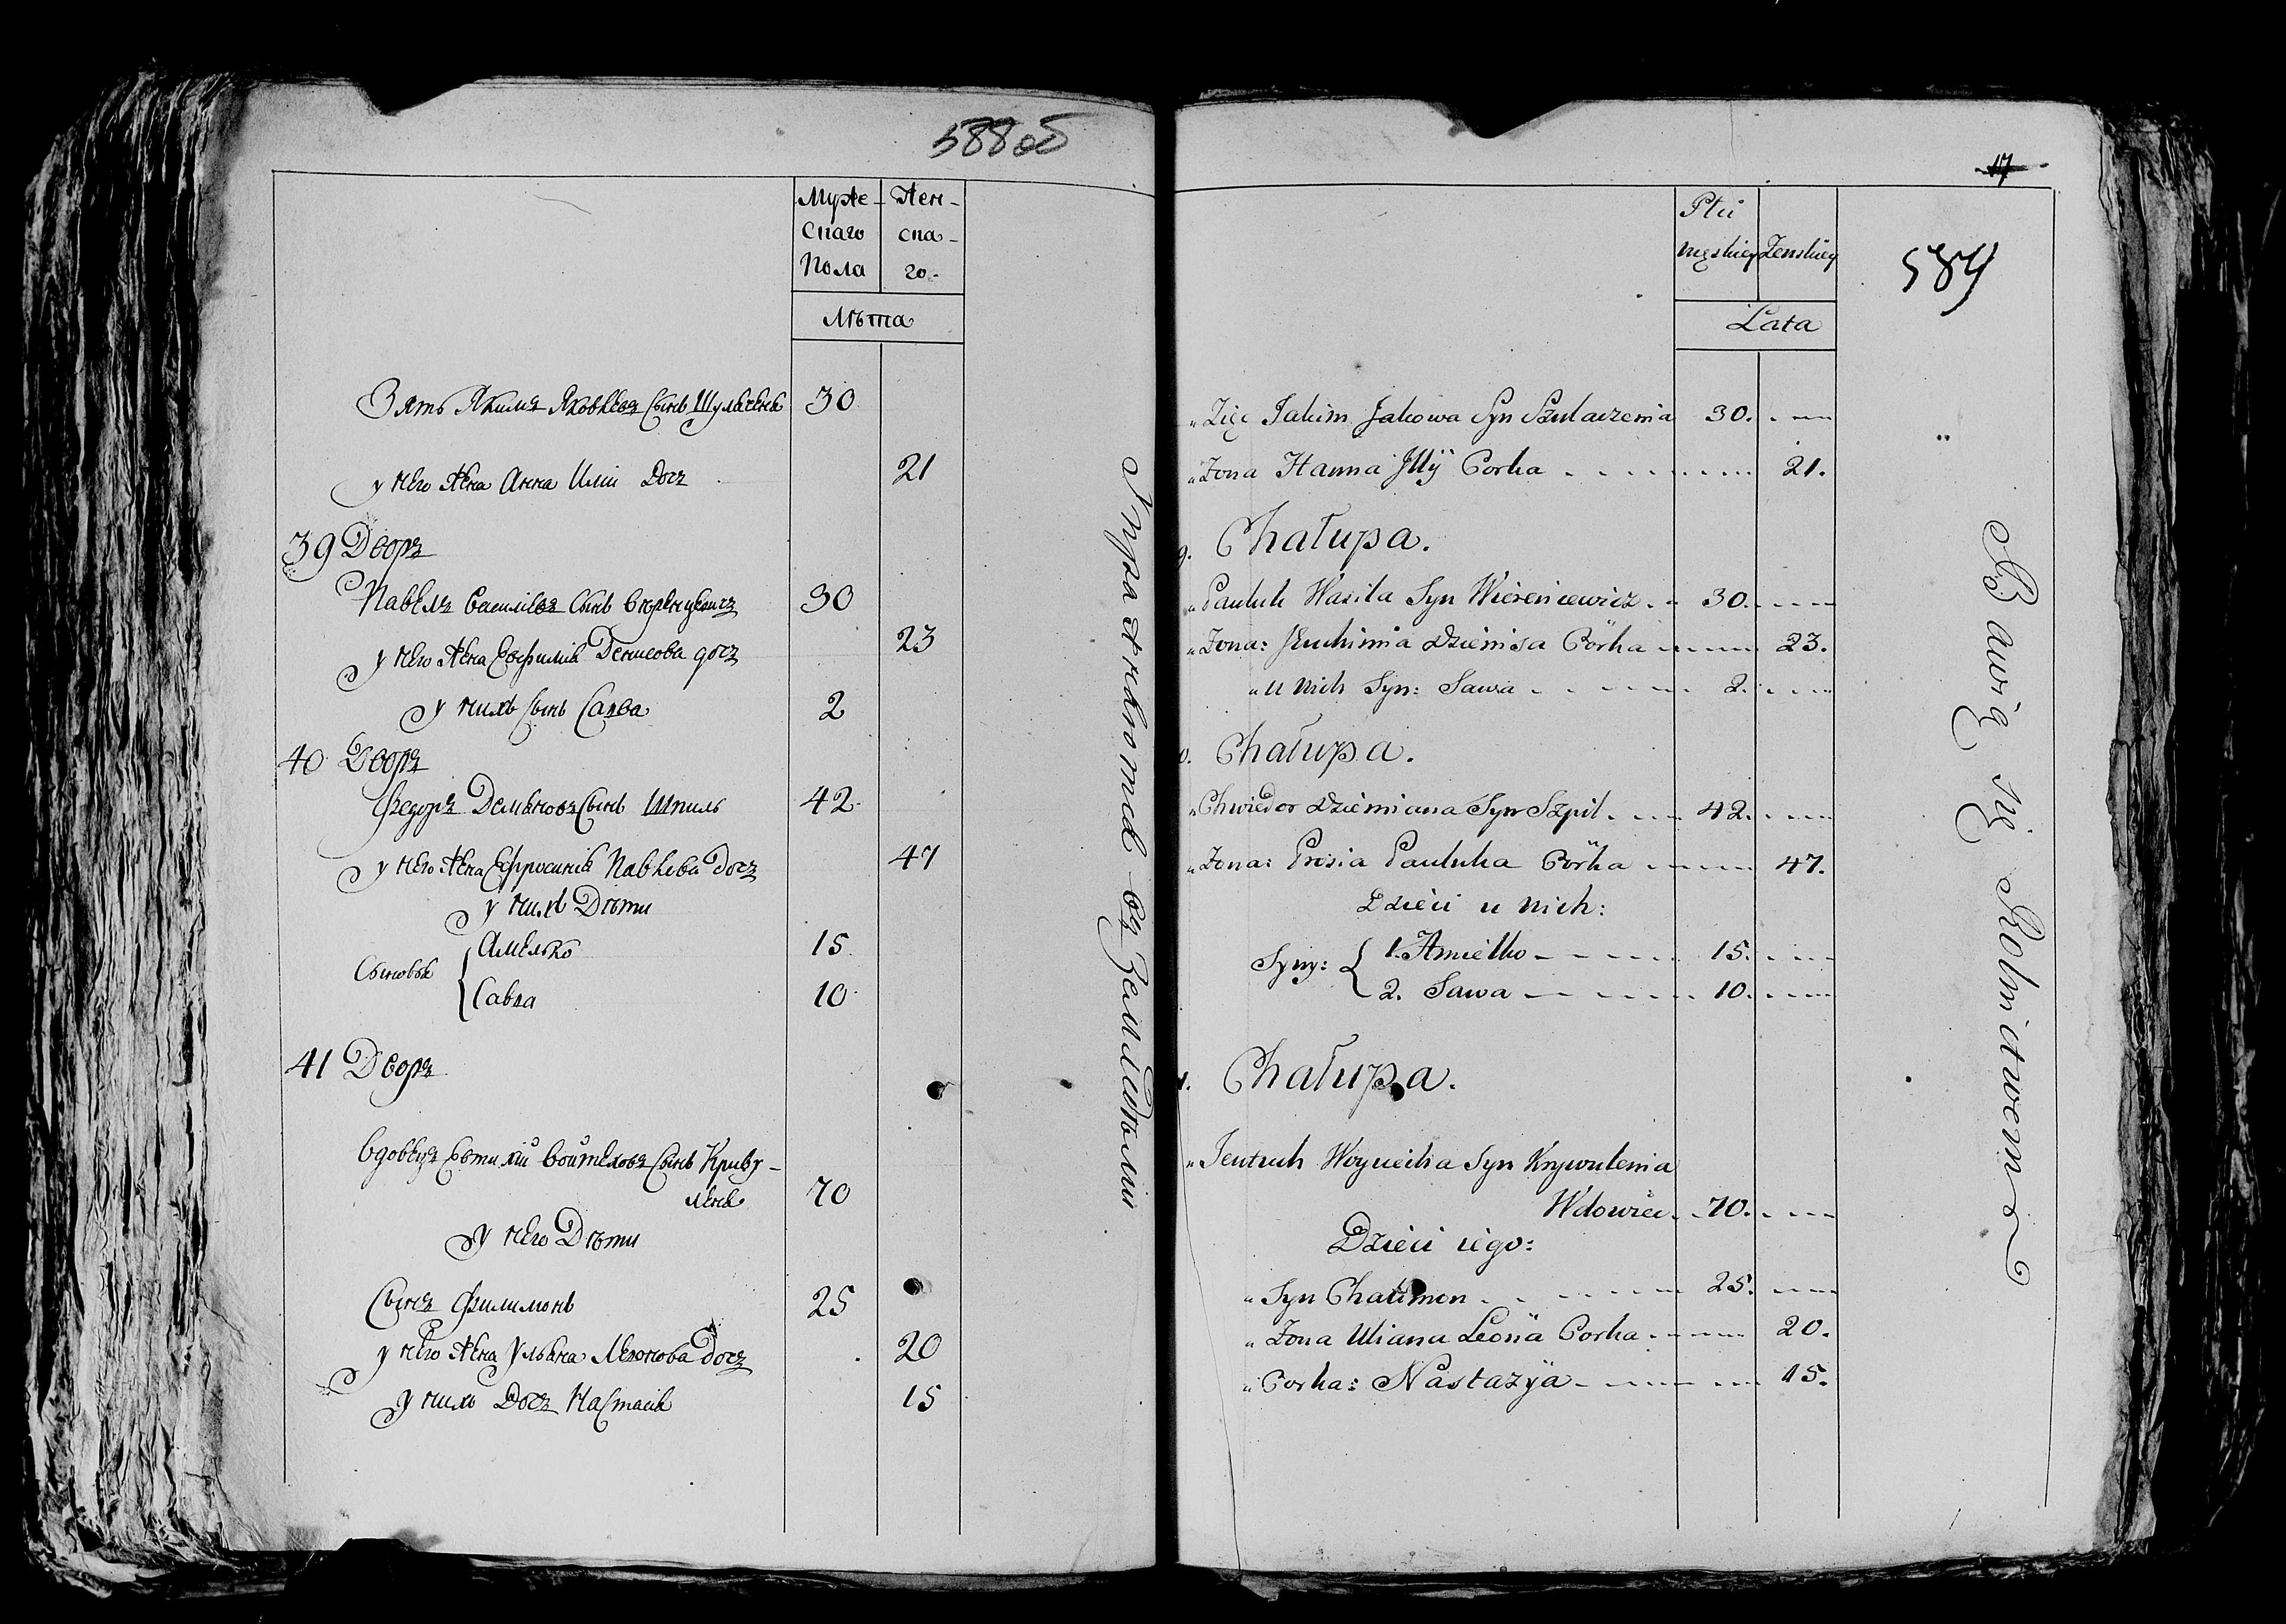 588 об
Муже-
скаго
Пола
Жен-
ска-
го.
Лѣта
Зять Якимъ Яковлевъ сынъ Шульгенѣ 30
у него жена Анна Илiи дочъ 21
39 Дворъ
Павелъ Василiевъ сынъ 30
у него жена Евфимiѣ Денисова дочъ 23
у нихъ сынъ Савва 2
40 Дворъ
Федоръ Демяновъ сынъ Шпиль 42
у него жена Ефросинiѣ Павлова дочъ 47
у нихъ Дѣти
Сыновѣ
Амелько 15
Савва 10
41 Дворъ
Вдовецъ Евтихiй Войтеховъ сынъ Криву-
ленѣ 70
у него Дѣти
Сынъ Филимонъ 25
у него жена Ульяна Леонова дочъ 20
у нихъ дочъ Настасiѣ 15
въ Земледѣлiи
17
Płci
męskiey
Żenskiey
Lata
589
„ Zięć Jakim Jakowa Syn Szulaczenia 30.
„ Żona Hanna Jllÿ Corka 21.
9. Chałupa.
„ Pauluk Wasila Syn Wiereniewicz 30.
„ Żona: Jeuchimia Dzienisa Córka 23.
„ u nich Syn: Sawa 2.
0. Chałupa.
„ Chwiedor Dziemiana Syn Szpil 42.
„ Żona: Prosia Pauluka Córka 47.
Dzieci u nich:
Syny:
1. Amielko 15.
2. Sawa 10.
1. Chałupa.
„ Jeutuch Woyciecha Syn Krywulenia
Wdowiec 70.
Dzieci iego:
„ Syn Chalimon 25.
„ Żona Uliana Leona Corka 20.
„ Corka: Nastazÿa 15.
Bawię się Rolnictwem